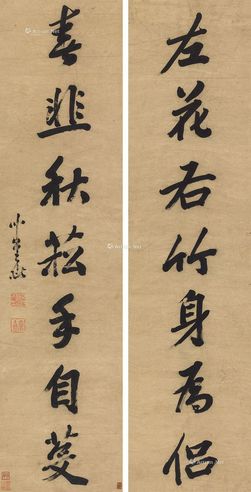 左花右竹身為侣
春韭秋菘手自